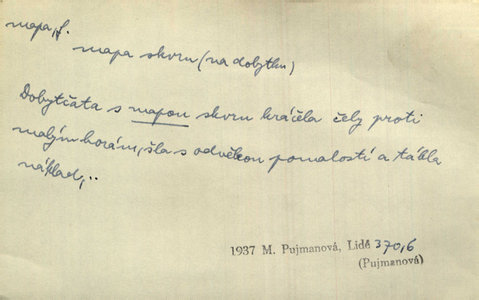 mapa, f.
mapa skvrn (na dobytku)
Dobytčata s mapou skvrn kráčela čely proti
malým horám, šla s odvěkou pomalostí a táhla
náklad,..
1937 M. Pujmanová, Lidé 370,6
(Pujmanová)